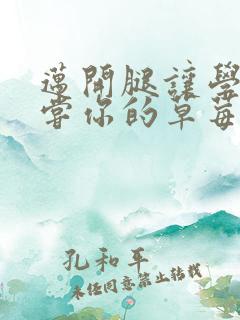 邁開腿讓學
嘗你的草莓
孔和平
未经同意禁止转载